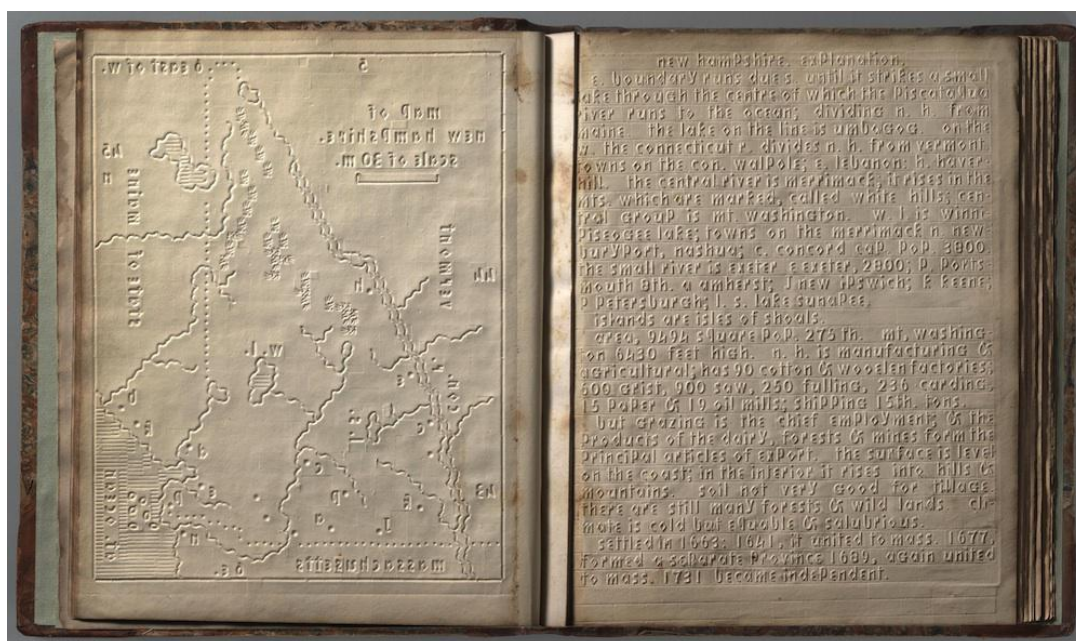 6 east of w.
5
map of
new hampshire.
scale of 30 m.
45
n
state of maine
vermont
44
h
w. l.
43
massachusetts
6 e.
at. ocean
new hampshire. explanation.
e. boundary runs due s. until it strikes a small
lake through the centre of which the Piscataqua
river runs to the ocean; dividing n. h. from
maine. the lake on the line is umbagog. on the
w. the connecticut r. divides n. h. from vermont.
towns on the con. walpole; e. lebanon; h. haver-
hill. the central river is merrimack; it rises in the
mts. which are marked, called white hills; cen-
tral group is mt. washington. w. l. is winni-
piseogee lake; towns on the merrimack n. new-
buryport, nashua; c. concord cap. pop. 3800.
the small river is exeter. e exeter, 2800; p. ports-
mouth 8th. a amherst; j new ipswich; k keene;
p petersburgh; l. s. lake sunapee.
islands are isles of shoals.
area, 9494 square pop. 275 th. mt. washing-
ton 6430 feet high. n. h. is manufacturing &
agricultural; has 90 cotton & woolen factories;
600 grist, 900 saw, 250 fulling, 236 carding,
15 paper & 19 oil mills; shipping 15th. tons.
but grazing is the chief employment; & the
products of the dairy, forests & mines form the
principal articles of export. the surface is level
on the coast; in the interior it rises into hills &
mountains. soil not very good for tillage.
there are still many forests & wild lands. cli-
mate is cold but equable & salubrious.
settled in 1663; 1641, it united to mass. 1677,
formed a separate province 1689, again united
to mass. 1731 became independent.